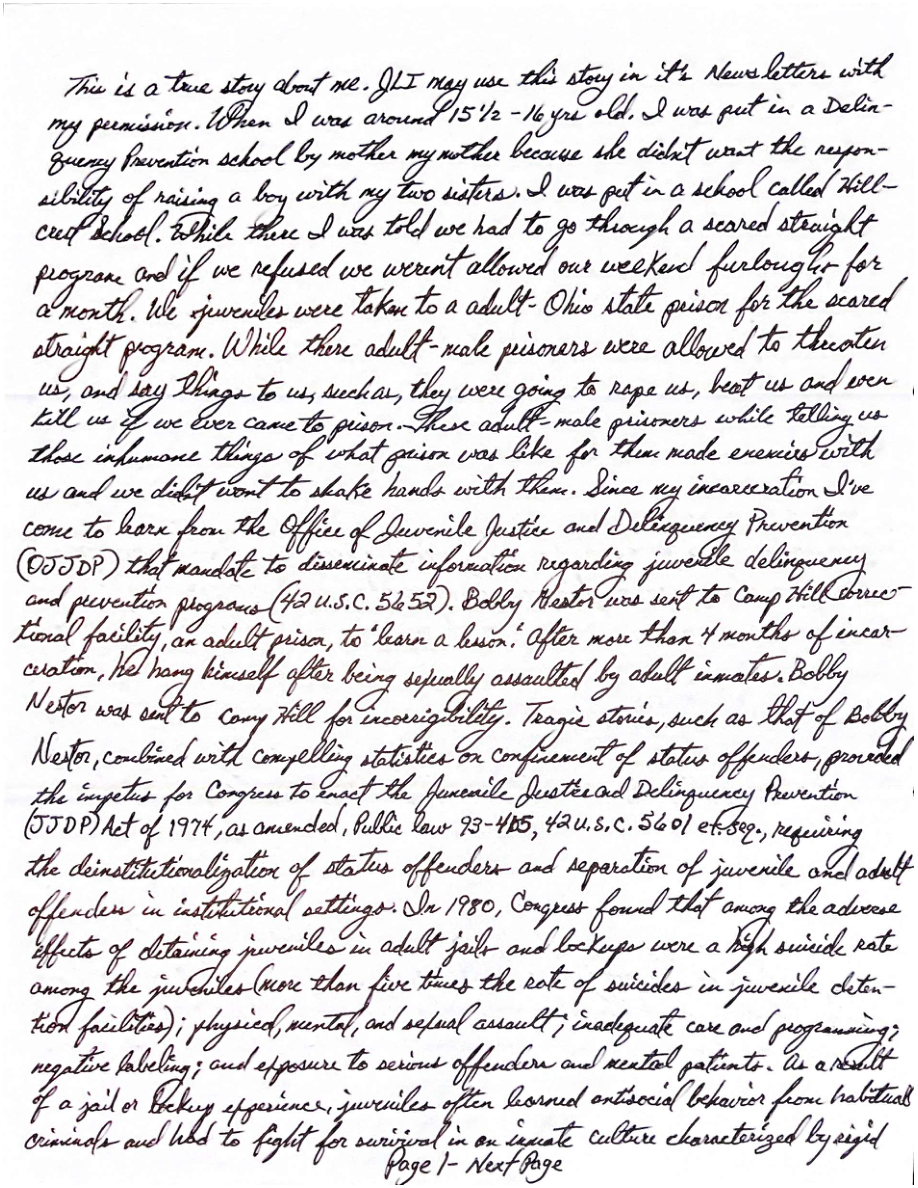 This is a true story about me. JLI may use this story in it's News letters with
my permission. When I was around 15 1/2 - 16 yrs old. I was put in a Delin-
quency Prevention school by mother my mother because she didn't want the respon-
sibility of raising a boy with my two sisters. I was put in a school called Hill-
crest School. While there I was told we had to go through a scared straight
program and if we refused we weren't allowed our weekend furloughs for
a month. We juveniles were taken to a adult-Ohio state prison for the scared
straight program. While there adult-male prisoners were allowed to threaten
us, and say things to us, such as, they were going to rape us, beat us and even
kill us if we ever came to prison. These adult-male prisoners while telling us
those inhumane things of what prison was like for them made enemies with
us and we didn't want to shake hands with them. Since my incarceration I've
come to learn from the Office of Juvenile Justice and Delinquency Prevention
(OJJDP) that mandate to disseminate information regarding juvenile delinquency
and prevention programs (42 U.S.C. 5652). Bobby Nestor was sent to Camp Hill correc-
tional facility, an adult prison, to "learn a lesson." After more than 4 months of incar-
ceration, he hang himself after being sexually assaulted by adult inmates. Bobby
Nestor was sent to Camp Hill for incorrigibility. Tragic stories, such as that of Bobby
Nestor, combined with compelling statistics on confinement of status offenders, provided
the impetus for Congress to enact the Juvenile Justice and Delinquency Prevention
(JJDP) Act of 1974, as amended, Public law 93-415, 42 U.S.C. 5601 et. seq., requiring
the deinstitutionalization of status offenders and separation of juvenile and adult
offenders in institutional settings. In 1980, Congress found that among the adverse
effects of detaining juveniles in adult jails and lockups were a high suicide rate
among the juveniles (more than five times the rate of suicides in juvenile deten-
tion facilities); physical, mental, and sexual assault; inadequate care and programming;
negative labeling; and exposure to serious offenders and mental patients. As a result
of a jail or lockup experience, juveniles often learned antisocial behavior from habitual
criminals and had to fight for survival in an inmate culture characterized by rigid
Page 1 - Next Page